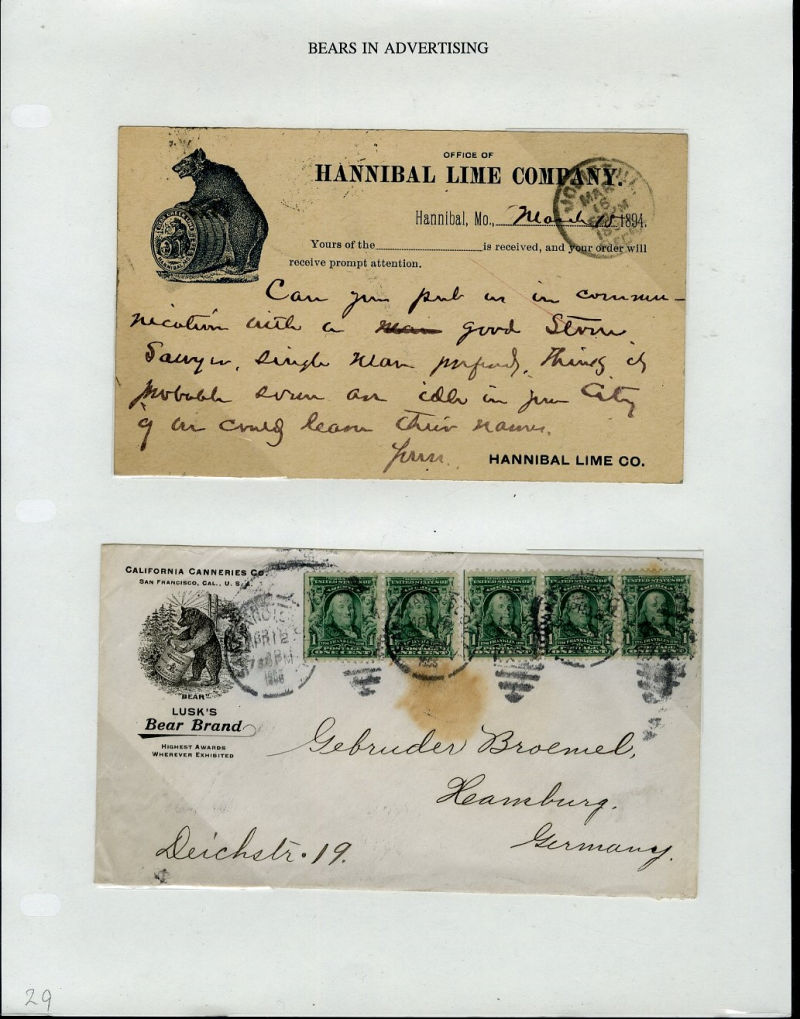 BEARS IN ADVERTISING
OFFICE OF
HANNIBAL LIME COMPANY.
Hannibal, Mo., March 15 1894.
Yours of the is received, and your order will
receive prompt attention.
Can you put us in commu-
nication with a good Stone
Sawyer, single man prefered, Think it
probable some are idle in your City
& we could learn their names.
Yours
HANNIBAL LIME CO.
CALIFORNIA CANNERIES CO.
SAN FRANCISCO, CAL., U. S. A.
"BEAR"
LUSK'S
Bear Brand
HIGHEST AWARDS
WHEREVER EXHIBITED
APR 12
1906
Gebruder Broemel,
Hamburg.
Germany.
Deichstr. 19.
29